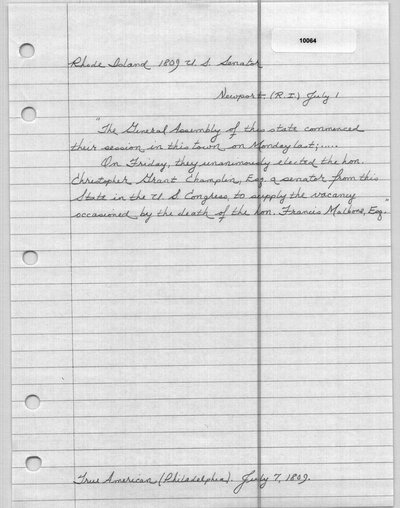 10064
Rhode Island 1809 U S. Senator
Newport (R.I.) July 1
"The General Assembly of this state commenced
their session in this town on Monday last;.....
On Friday, they unanimously elected the hon.
Christopher Grant Champlin, Esq. a senator from this
State in the U S Congress, to supply the vacancy
occasioned by the death of the hon. Francis Malbone, Esq."
True American (Philadelphia). July 7, 1809.